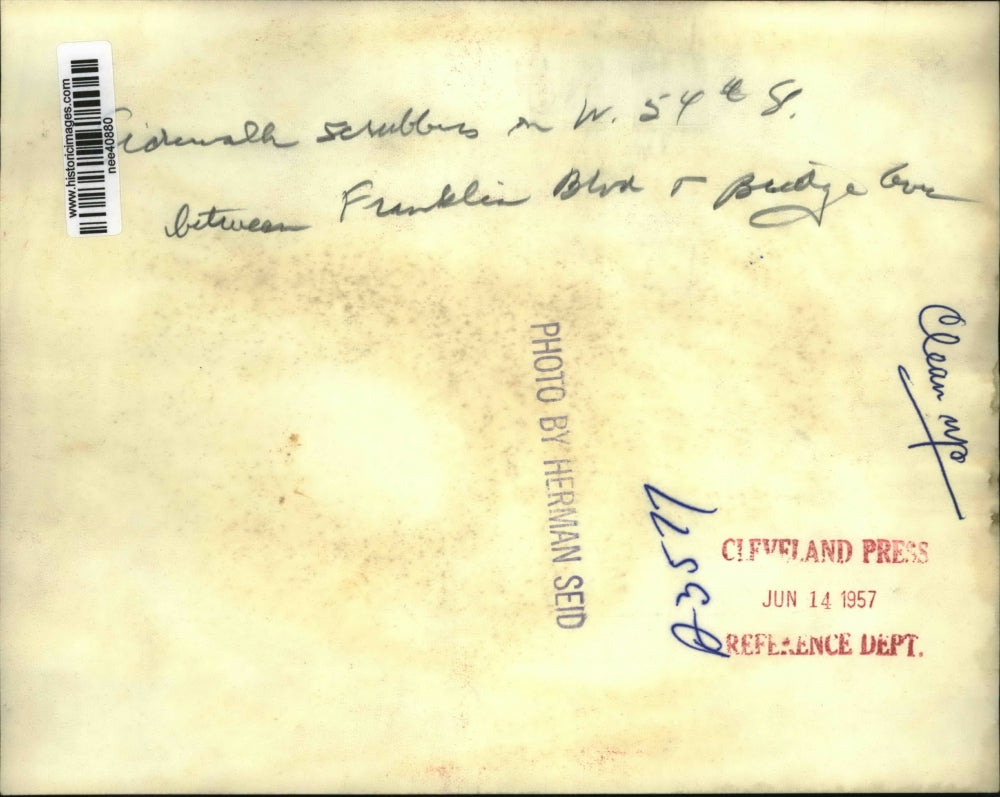 www.historicimages.com
nee40880
Sidewalk scrubbers on W. 54th St.
between Franklin Blvd + Bridge Ave
Clean up
PHOTO BY HERMAN SEID
CLEVELAND PRESS
JUN 14 1957
REFERENCE DEPT.